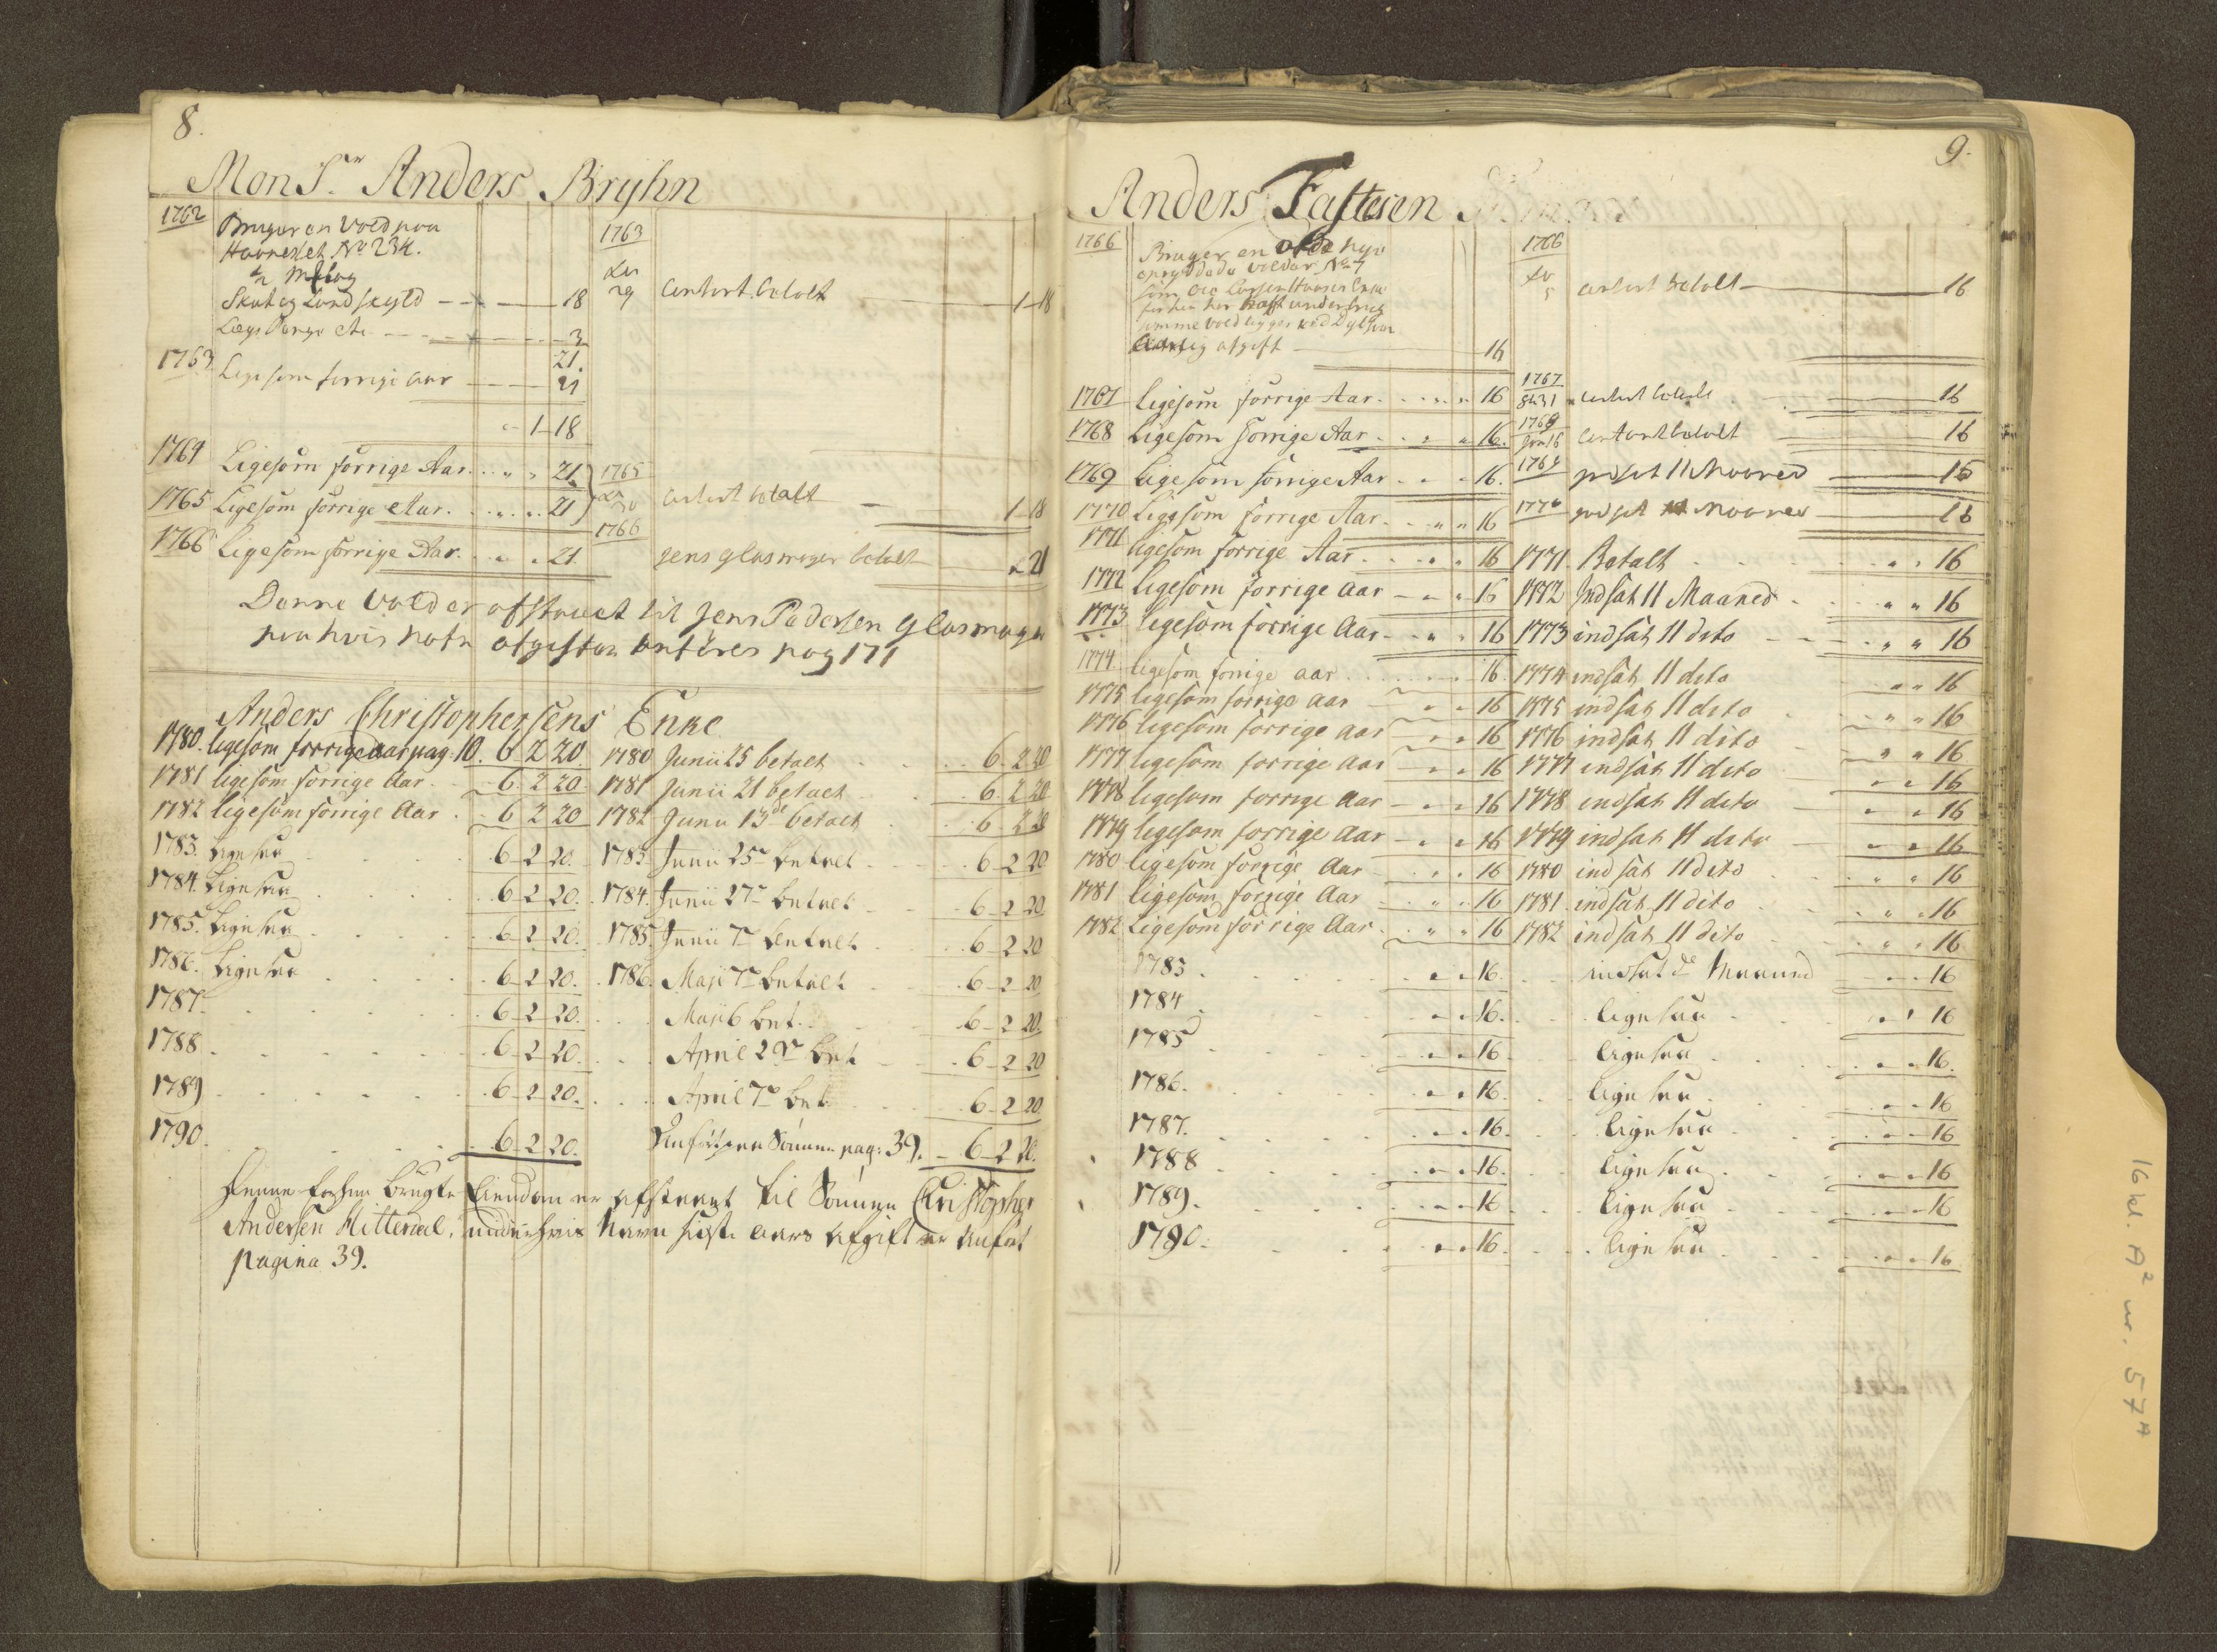 8.
MonSr Anders Bryhn
1762 Bruger en Vold paa
Havnexlet No 234.
Skat og Landskyld 18
Lægs Penge etc 3
21.
1763 Ligesom forrige aar 21
1-18
1764 Ligesom forrige Aar. 21
1765 Ligesom forrige Aar. 21
1766 Ligesom forrige Aar. 21.
1763
29 Contant betalt 1-18
1765
30 Contant betalt 1-18
1766
Jens Glasmager betalt 21
Denne Vold er afstaaet til Jens Pedersen Glasmager
paa hvis Nafn afgiften anføres pag 171
Anders Christophersens Enke
1780. ligesom forrige aar pag: 10. 6 2 20. 1780 Junii 25 betalt 6. 2 20
1781 ligesom forrige Aar. 6. 2 20. 1781 Junii 21 betalt 6. 2 20
1782 ligesom forrige Aar. 6 2 20 1782 Junii 13de betalt 6 2 20
1783. Ligesaa 6 2 20. 1783 Junii 25 betalt 6 2 20
1784. Ligesaa 6 2 20. 1784. Junii 27 betalt 6 2 20
1785. Ligesaa 6 2 20. 1785. Junii 7 betalt 6 2 20
1786. Ligesaa 6 2 20. 1786. Maji 7 betalt 6 2 20
1787. 6 2 20. Maji 6 bet. 6 2 20.
1788. 6 2 20. April 29 bet 6 2 20
1789 6 2 20. April 7 bet. 6 2 20
1790. 6 2 20. Anført paa Sønnen pag: 39. 6 2 20.
Denne forhen brugte Eiendom er afstaaet til Sønnen Christopher
Andersen Hitterdal, under hvis Navn sidste aars Afgift er Anført
pagina 39.
9.
Anders Fastesen
1766 Bruger en
opryddede volder No 7
som Ole Larsen
forhen har haft under brug
samme vold ligger ved
Aarlig afgift 16
1767 Ligesom forrige Aar. 16
1768 Ligesom forrige Aar. 16.
1769 Ligesom forrige Aar 16.
1770 Ligesom forrige Aar. 16
1771 ligesom forrige Aar. 16
1772 ligesom forrige aar 16
1773 ligesom forrige Aar. 16
1774 ligesom forrige aar 16.
1775 ligesom forrige aar 16
1776 ligesom forrige aar 16
1777 ligesom forrige aar 16
1778 ligesom forrige aar 16
1779 ligesom forrige aar 16
1780 ligesom forrige Aar 16
1781 ligesom forrige Aar 16
1782 Ligesom forrige Aar. 16
1783. 16.
1784 16.
1785 16
1786. 16.
1787. 16.
1788 16.
1789. 16
1790. 16.
1766
5 Contant betalt 16
1767
Contant betalt 16
1768
Contant betalt 16
1769 indsat 11 Maaned 16
1770 indsat 11 Maaned 16
1771. Betalt 16
1772 Indsat 11 Maaned 16
1773 indsat 11 dito 16
1774 indsat 11 dito 16
1775 indsat 11 dito 16
1776 indsat 11 dito 16
1777 indsat 11 dito 16
1778 indsat 11 dito 16
1779 indsat 11 dito 16
1780 indsat 11 dito 16
1781 indsat 11 dito 16
1782 indsat 11 dito 16
indsat Maaned 16
ligesaa 16
ligesaa 16.
ligesaa 16
ligesaa 16
ligesaa 16
ligesaa 16
ligesaa 16
16 kl. A2 nr. 57A